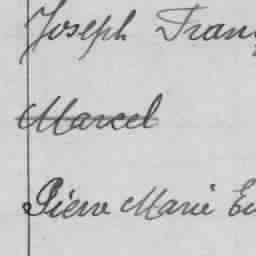 Joseph Fran
Marcel
Pierre Marie Eu